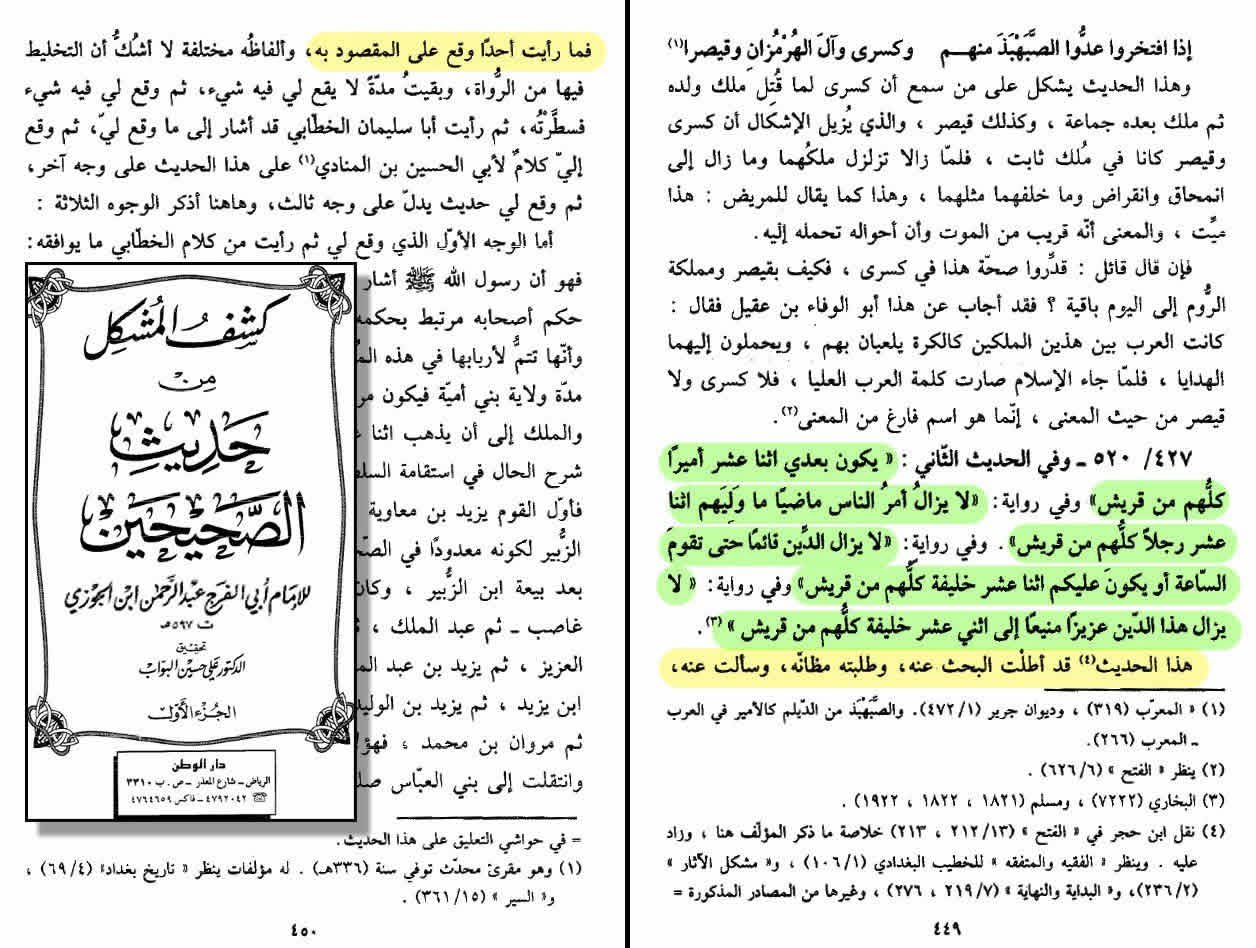 إذا افتخروا عدُّوا الصَّبَهْبَذَ منهـم وكسرى وآلَ الهُرْمُزانِ وقيصرا(١)
وهذا الحديث يشكل على من سمع أن كسرى لما قُتِل ملك ولده
ثم ملك بعده جماعة ، وكذلك قيصر ، والذي يُزيل الإشكال أن كسرى
وقيصر كانا في مُلك ثابت ، فلمّا زالا تزلزل ملكُهما وما زال إلى
انمحاق وانقراض وما خلفهما مثلهما ، وهذا كما يقال للمريض : هذا
ميِّت ، والمعنى أنّه قريب من الموت وأن أحواله تحمله إليه.
فإن قال قائل : قدِّروا صحّة هذا في كسرى ، فكيف بقيصر ومملكة
الرُّوم إلى اليوم باقية ؟ فقد أجاب عن هذا أبو الوفاء بن عقيل فقال :
كانت العرب بين هذين الملكين كالكرة يلعبان بهم ، ويحملون إليهما
الهدايا ، فلمّا جاء الإسلام صارت كلمة العرب العليا ، فلا كسرى ولا
قيصر من حيث المعنى ، إنّما هو اسم فارغ من المعنى(٢).
٤٢٧/ ٥٢٠ ـ وفي الحديث الثّاني : « يكون بعدي اثنا عشر أميرًا
كلُّهم من قريش» وفي رواية: «لا يزالُ أمرُ الناس ماضيًا ما وَلِيَهم اثنا
عشر رجلاً كلُّهم من قريش» . وفي رواية: «لا يزال الدِّين قائمًا حتى تقومَ
السّاعة أو يكونَ عليكم اثنا عشر خليفة كلُّهم من قريش» وفي رواية: « لا
يزال هذا الدّين عزيزًا منيعًا إلى اثني عشر خليفة كلُّهم من قريش »(٣).
هذا الحديث(٤) قد أطلْت البحث عنه، وطلبته مظانّه، وسألت عنه،
(١) « المعرّب (٣١٩) ، وديوان جرير (٤٧٢/١). والصَّبَهْبَذ من الدّيلم كالأمير في العرب
ـ المعرب (٢٦٦).
(٢) ينظر « الفتح » (٦٢٦/٦) .
(٣) البخاري (٧٢٢٢) ، ومسلم (١٨٢١ ، ١٨٢٢ ، ١٩٢٢) .
(٤) نقل ابن حجر في « الفتح » (٢١٢/١٣ ، ٢١٣) خلاصة ما ذكر المؤلّف هنا ، وزاد
عليه . وينظر « الفقيه والمتفقه » للخطيب البغدادي (١٠٦/١) ، و« مشكل الآثار »
(٢٣٦/٢)، و« البداية والنهاية » (٢١٩/٧ ، ٢٧٦) ، وغيرها من المصادر المذكورة =
٤٤٩
فما رأيت أحدًا وقع على المقصود به، وألفاظُه مختلفة لا أشكُّ أن التخليط
فيها من الرُّواة، وبقيتُ مدّةً لا يقع لي فيه شيء، ثم وقع لي فيه شيء
فسطَّرْتُه، ثم رأيت أبا سليمان الخطّابي قد أشار إلى ما وقع ليّ، ثم وقع
إليّ كلامٌ لأبي الحسين بن المنادي(١) على هذا الحديث على وجه آخر،
ثم وقع لي حديث يدلّ على وجه ثالث، وهاهنا أذكر الوجوه الثلاثة :
أما الوجه الأوّل الذي وقع لي ثم رأيت من كلام الخطّابي ما يوافقه:
فهو أن رسول الله ﷺ أشار
حكم أصحابه مرتبط بحكمه
وأنّها تتمُّ لأربابها في هذه
مدّة ولاية بني أميّة فيكون
والملك إلى أن يذهب اثنا
شرح الحال في استقامة
فأوّل القوم يزيد بن معاوية
الزُّبير لكونه معدودًا في
بعد بيعة ابن الزُّبير ، وكان
غاصب ـ ثم عبد الملك ،
العزيز ، ثم يزيد بن عبد
ابن يزيد ، ثم يزيد بن الوليد
ثم مروان بن محمد ،
وانتقلت إلى بني العبّاس
= في حواشي التعليق على هذا الحديث.
(١) وهو مقرئ محدّث توفي سنة (٣٣٦هـ) . له مؤلفات ينظر « تاريخ بغداد» (٦٩/٤) ،
و« السير » (٣٦١/١٥) .
٤٥٠
كشف المُشكل
من
حديث
الصّحيحين
للإمام أبي الفرج عبد الرحمن ابن الجوزي
ت ٥٩٧ هـ
تحقيق
الدكتور علي حسين البواب
الجزء الأول
دار الوطن
الرياض ـ شارع المعذر ـ ص. ب ٣٣١٠
☎ ٤٧٩٢٠٤٢ ـ فاكس ٤٧٦٤٦٥٩